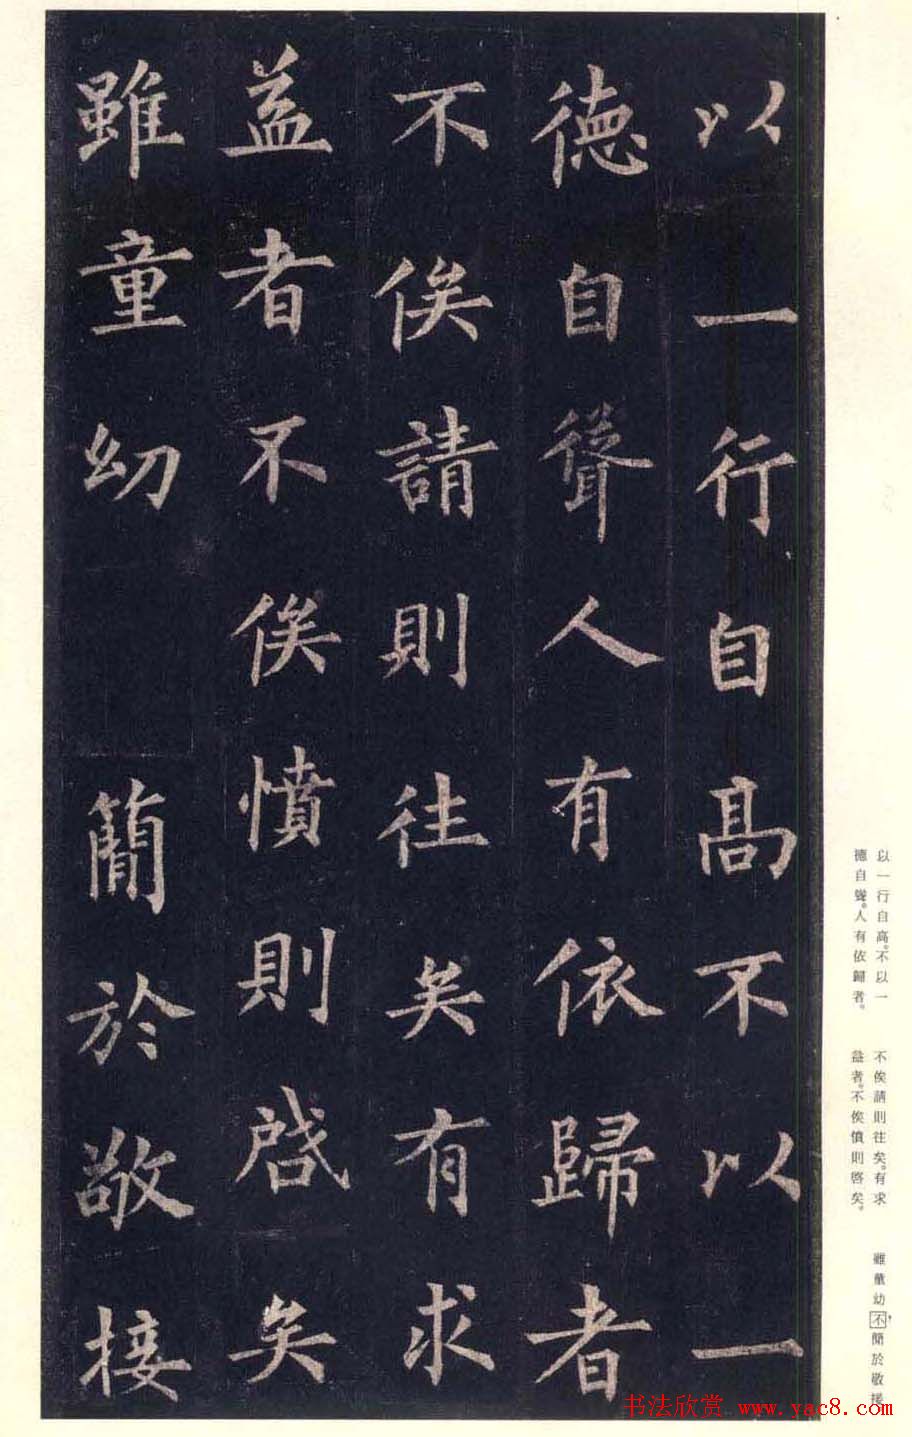 以一行自高不以一
德自聳人有依歸者
不俟請則往矣有求
益者不俟憤則啓矣
雖童幼簡於敬接
以一行自高。不以一
德自聳。人有依歸者。
不俟請則往矣。有求
益者。不俟憤則啓矣。
雖童幼不簡於敬接
书法欣赏 www.yac8.com